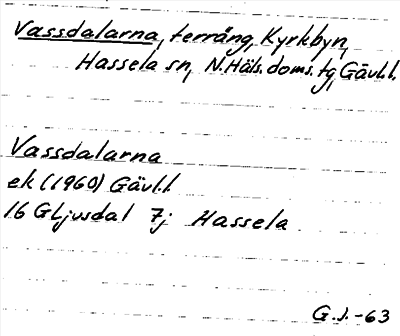 Vassdalarna, terräng, Kyrkbyn,
Hassela sn, N.Häls.doms.tg, Gävl.l.
Vassdalarna
ek (1960) Gävl.l
16 G Ljusdal 7j Hassela
G.J.-63